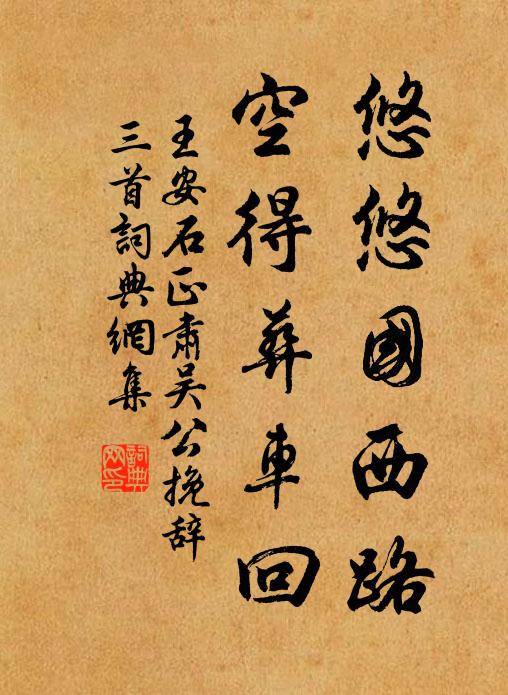 悠悠國西路
空得葬車回
王安石正肅吴公挽辞
三首詞典網集
詞典網印